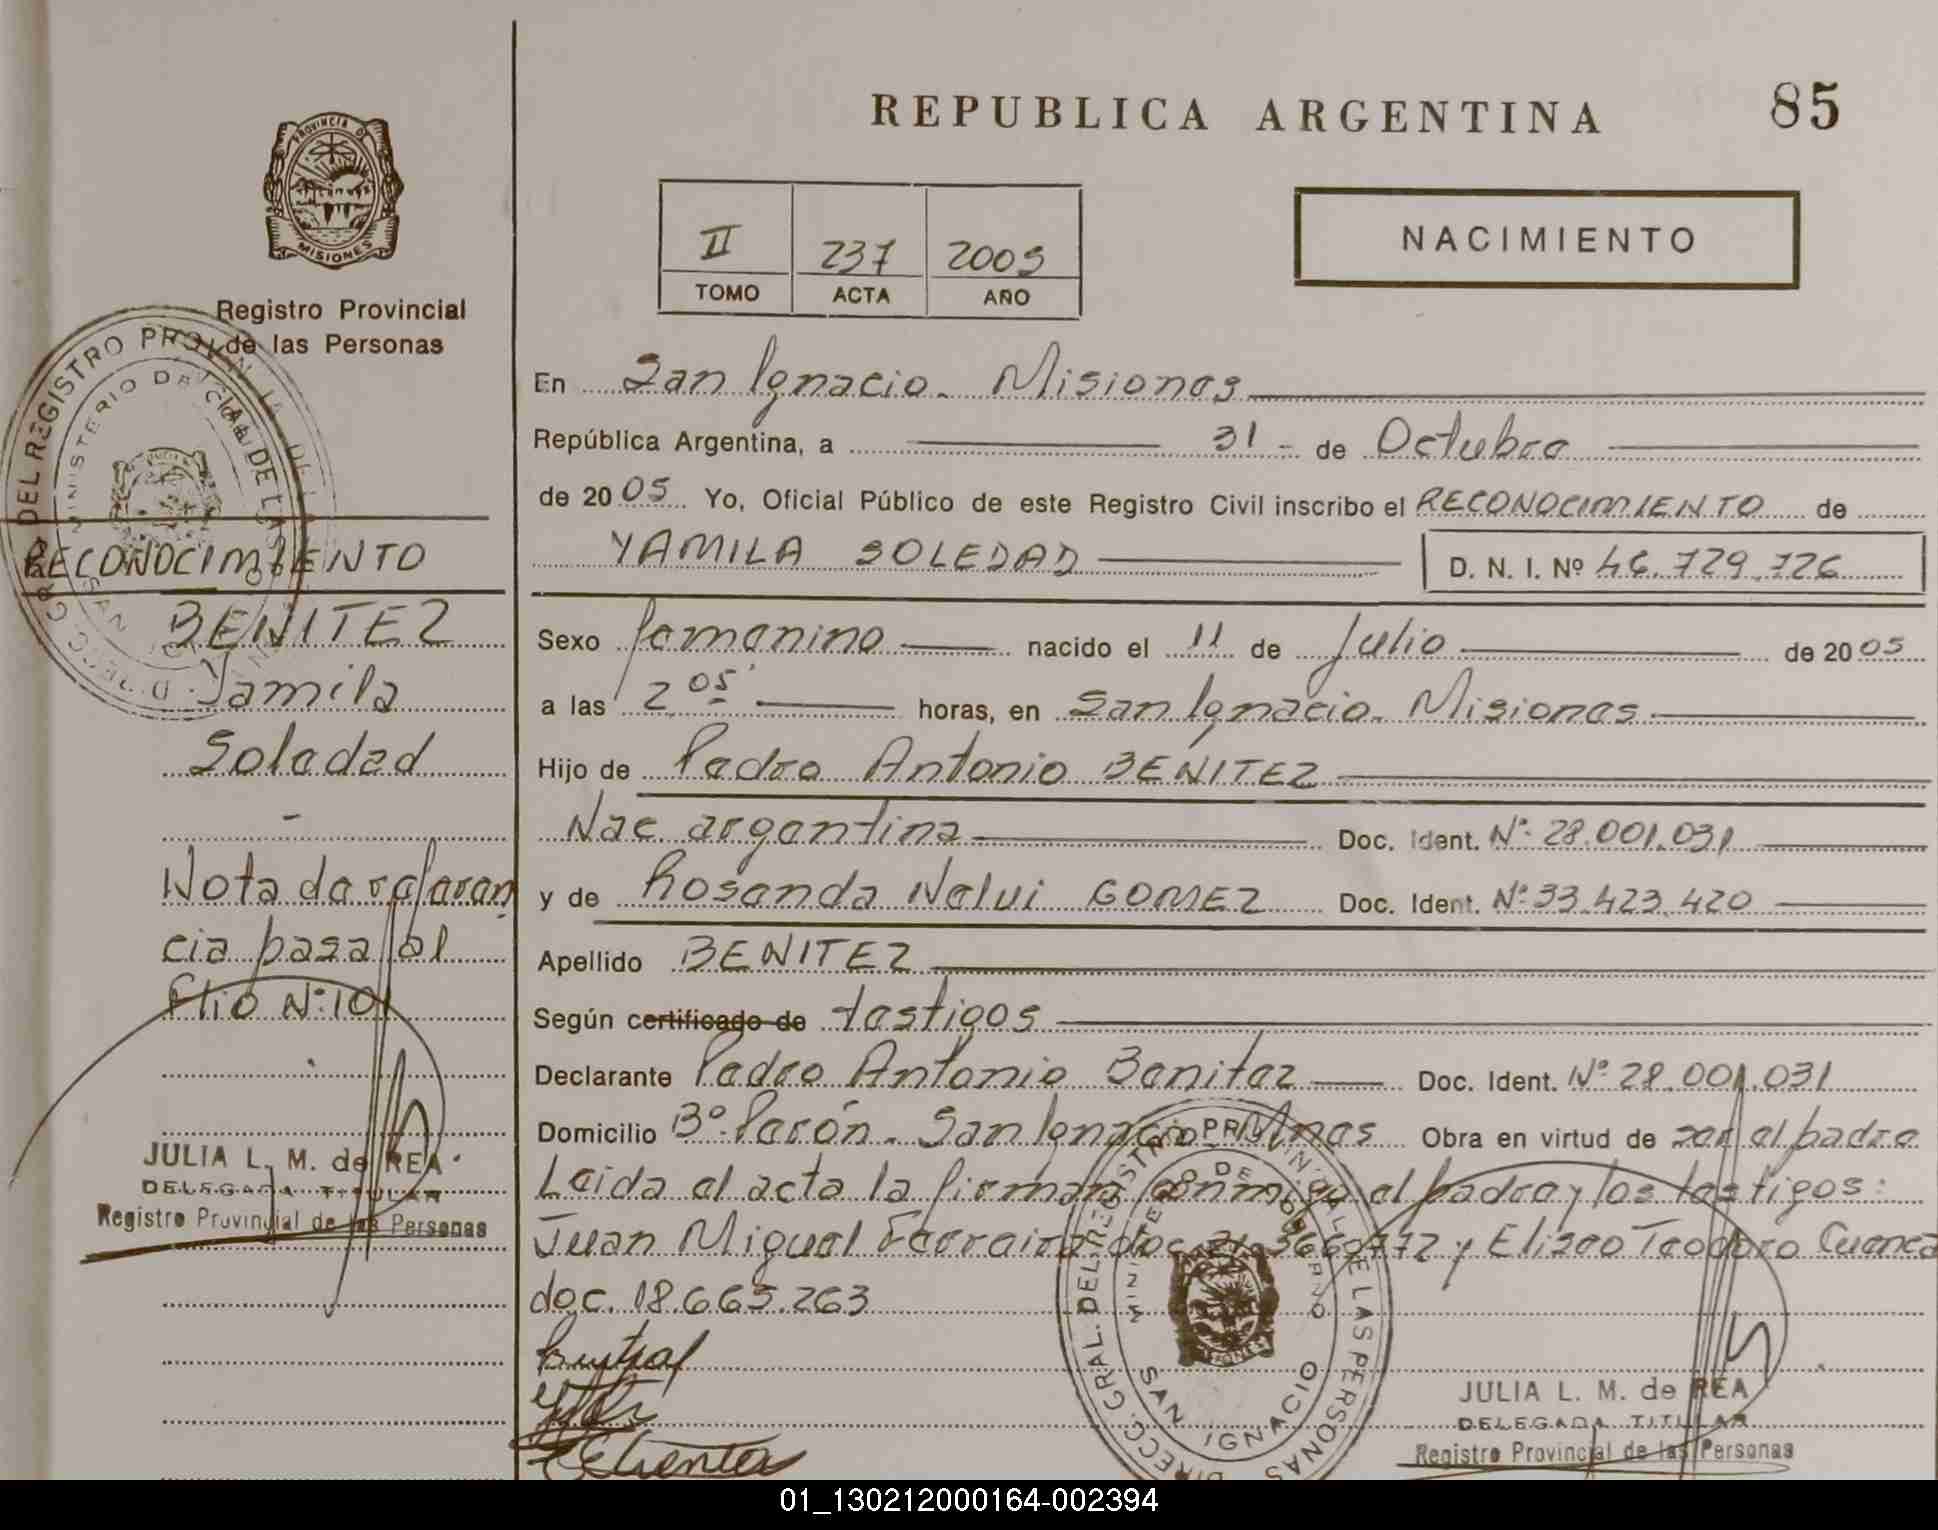 REPUBLICA ARGENTINA
85
PROVINCIA DE
MISIONES
Registro Provincial
de las Personas
II 237 2005
TOMO ACTA AÑO
NACIMIENTO
En San Ignacio - Misiones
República Argentina, a 31 - de Octubre
de 20 05 Yo, Oficial Público de este Registro Civil inscribo el RECONOCIMIENTO de
YAMILA SOLEDAD D. N. I. Nº 46.729.726
Sexo femenino nacido el 11 de Julio de 20 05
a las 2 05 horas, en San Ignacio - Misiones
Hijo de Pedro Antonio BENITEZ
Nac. argentina Doc. Ident. Nº 28.001.031
y de Rosanda Nelvi GOMEZ Doc. Ident. Nº 33.423.420
Apellido BENITEZ
Según certificado de testigos
Declarante Pedro Antonio Benitez Doc. Ident. Nº 28.001.031
Domicilio Bº Perón - San Ignacio Mnes Obra en virtud de ser el padre
Leida el acta la firman conmigo el padre y los testigos:
Juan Miguel Ferreira doc. y Eliseo Teodoro Cuenca
doc. 18.665.263
RECONOCIMIENTO
BENITEZ
Yamila
Soledad
-
Nota de referen
cia pasa al
flio Nº 101
JULIA L. M. de REA
DELEGADA TITULAR
Registro Provincial de las Personas
DIRECC. GRAL. DEL REGISTRO PROVINCIAL DE LAS PERSONAS
MINISTERIO DE GOBIERNO
SAN IGNACIO
JULIA L. M. de REA
DELEGADA TITULAR
Registro Provincial de las Personas
01_130212000164-002394